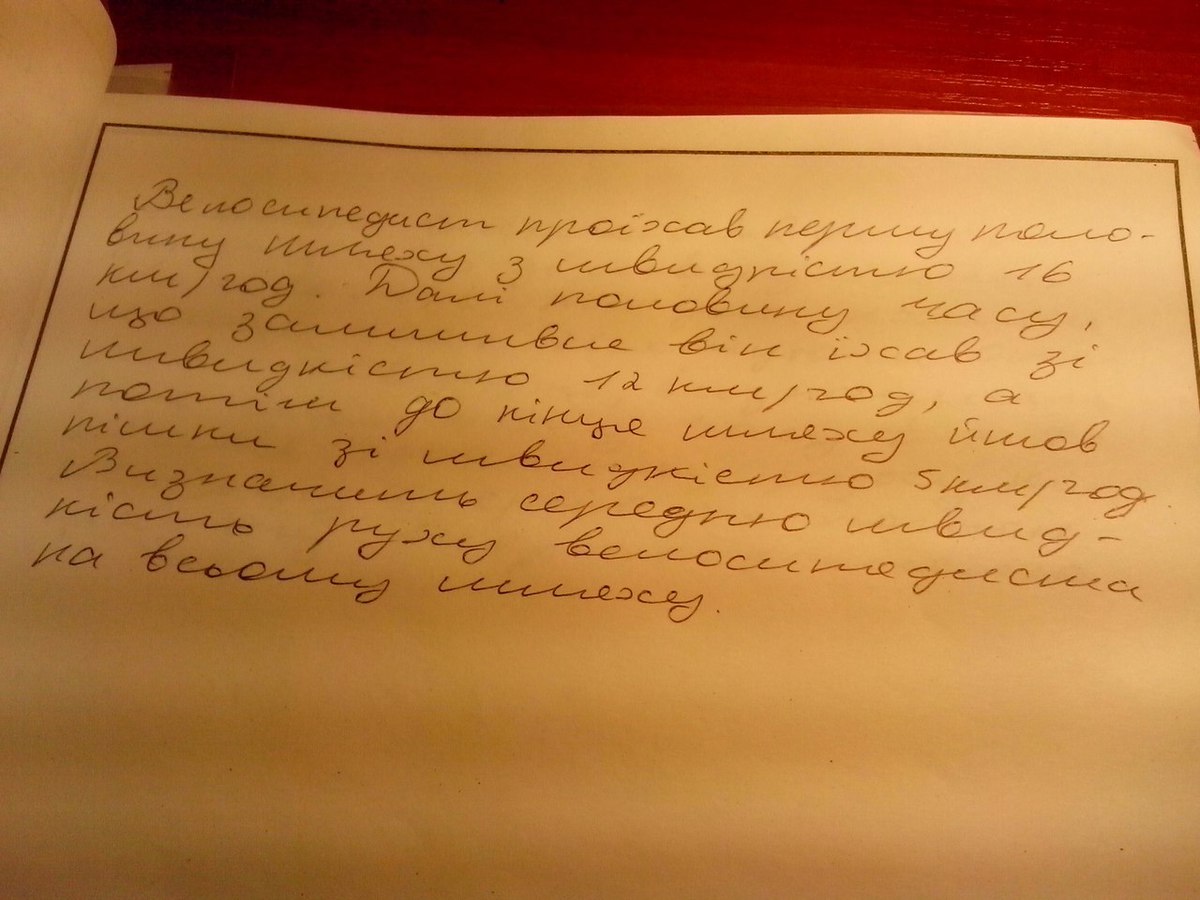 Велосипедист проїхав першу поло-
вину шляху з швидкістю 16
км/год. Далі половину часу,
що залишився він їхав зі
швидкістю 12 км/год, а
потім до кінця шляху йшов
пішки зі швидкістю 5 км/год.
Визначить середню швид-
кість руху велосипедиста
на всьому шляху.